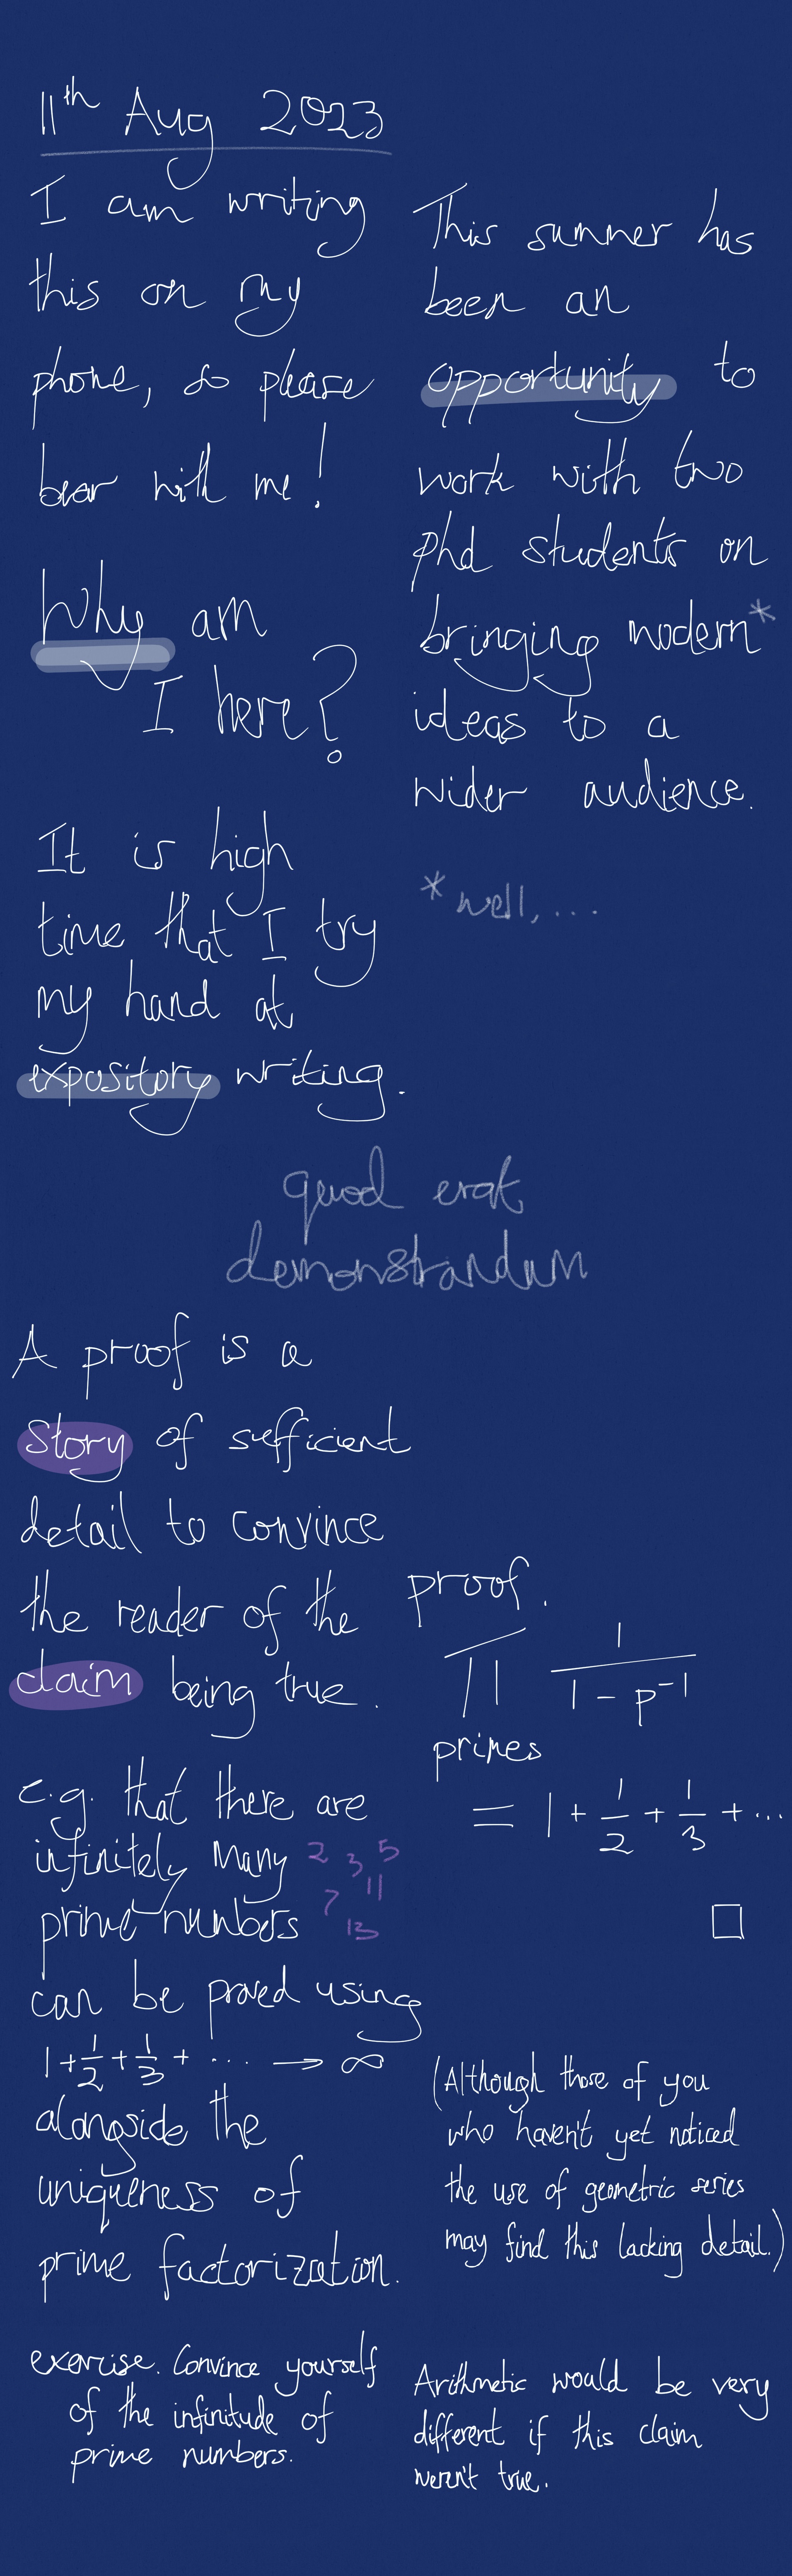 11th Aug 2023
I am writing
this on my
phone, so please
bear with me!
Why am
I here?
It is high
time that I try
my hand at
expository writing.
This summer has
been an
opportunity to
work with two
phd students on
bringing modern*
ideas to a
wider audience.
*well,...
quod erat
demonstrandum
A proof is a
story of sufficient
detail to convince
the reader of the
claim being true.
e.g. that there are
infinitely many
prime numbers
2 3 5
7 11
13
can be proved using
1 + 1/2 + 1/3 + ... → ∞
alongside the
uniqueness of
prime factorization.
proof.
∏ 1/(1 - p⁻¹)
primes
= 1 + 1/2 + 1/3 + ...
□
(Although those of you
who haven't yet noticed
the use of geometric series
may find this lacking detail.)
exercise. Convince yourself
of the infinitude of
prime numbers.
Arithmetic would be very
different if this claim
weren't true.